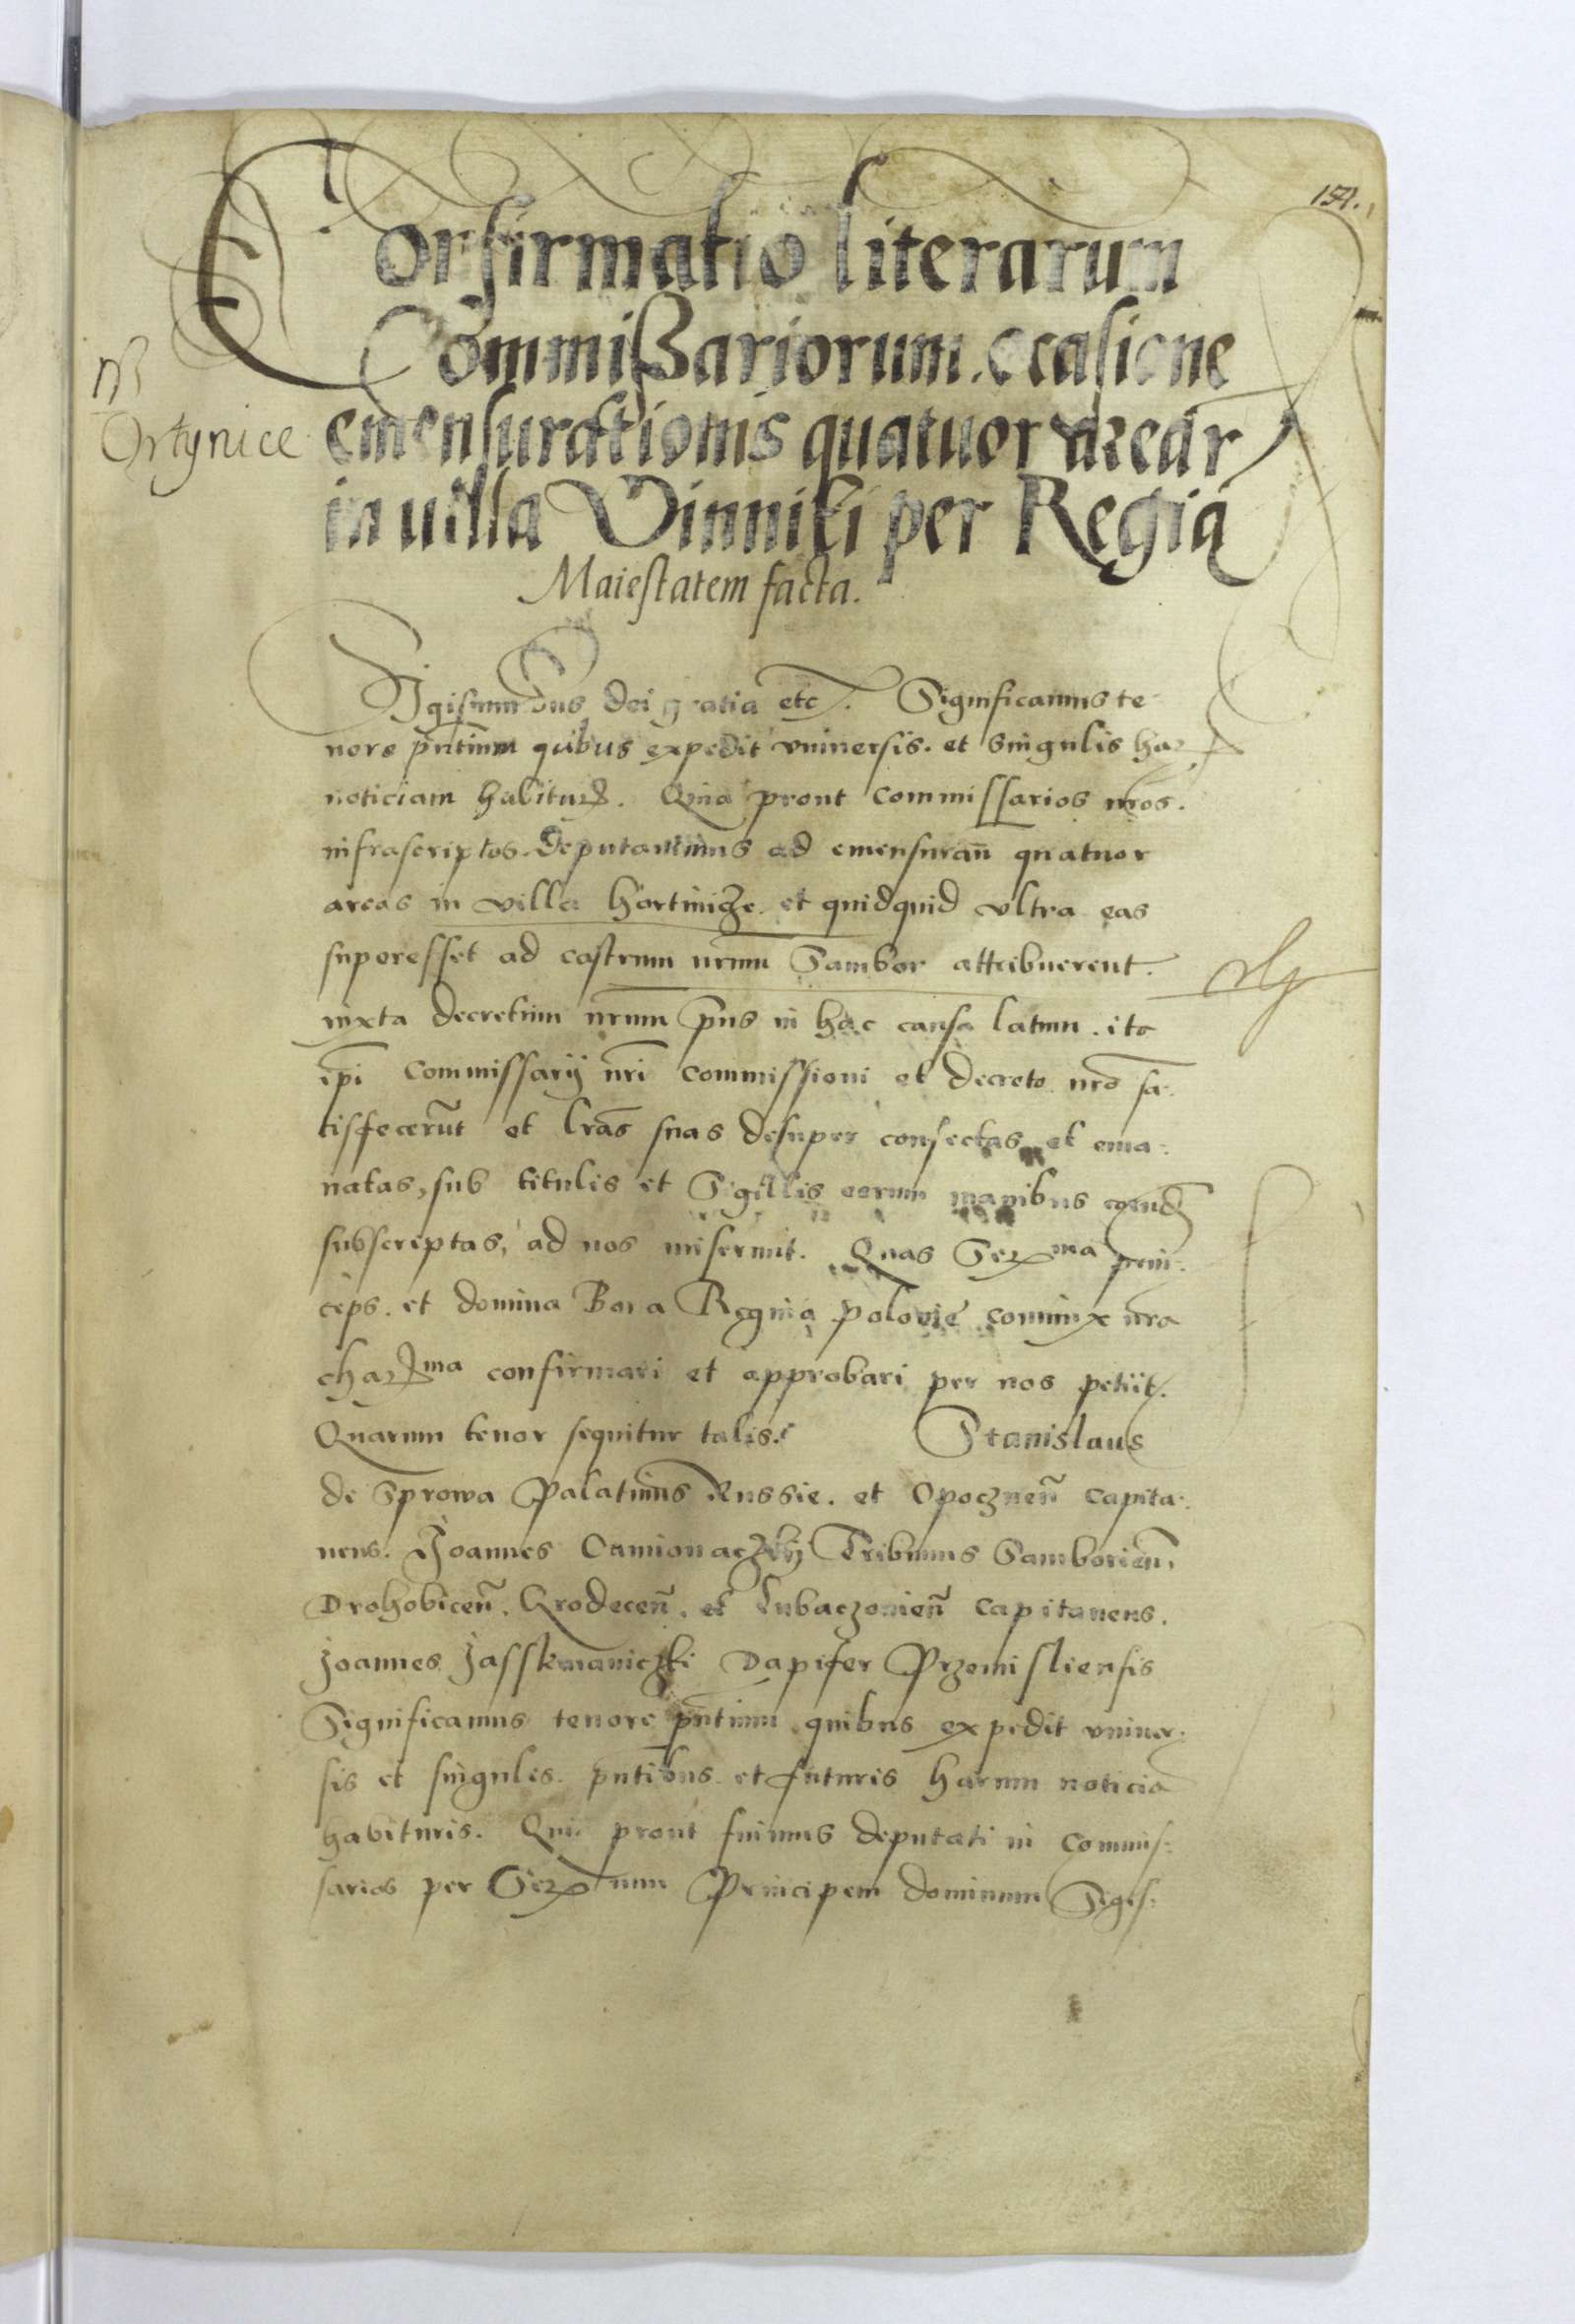 154.
Confirmatio literarum
Commißariorum. occasione
emensurationis quatuor arear
in uilla Vinniki per Regiā
Maiestatem facta.
Ortynice
Sigismundus dei gratia etc. Significamus te-
nore pñtium quibus expedit vniuersis. et singulis har
noticiam habitur. Quia prout commissarios nros.
infrascriptos. deputauimus ad emensurañ quatuor
areas in villa hortinicze. et quidquid vltra eas
superesset ad castrum nrum Sambor attribuerent.
iuxta decretum nrum prius in hac causa latum. ita
ipi Commissarij nri commissioni et decreto nro sa-
tisfecerūt et lras suas desuper confectas et ema-
natas, sub titulis et Sigillis eorum manibus eorund
subscriptas, ad nos miserunt. Quas Ser ma prin-
ceps. et domina Bona Regina polonie coniunx nra
char ma confirmari et approbari per nos petiit.
Quarum tenor sequitur talis. Stanislaus
de Sprowa Palatinus Russie. et Opocznēn Capita-
neus. Joannes Camionaczkij Tribunus Samboriēn,
Drohobicēn. Grodecēn. et Lubaczouiēn Capitaneus.
Joannes Jasskmaniczki Dapifer Przemisliensis
Significamus tenore pñtium quibus expedit vniuer-
sis et singulis. pñtibus. et futuris harum noticiā
habituris. Quia prout fuimus deputati in Commis-
sarios per Ser mum Principem dominum Sigis-